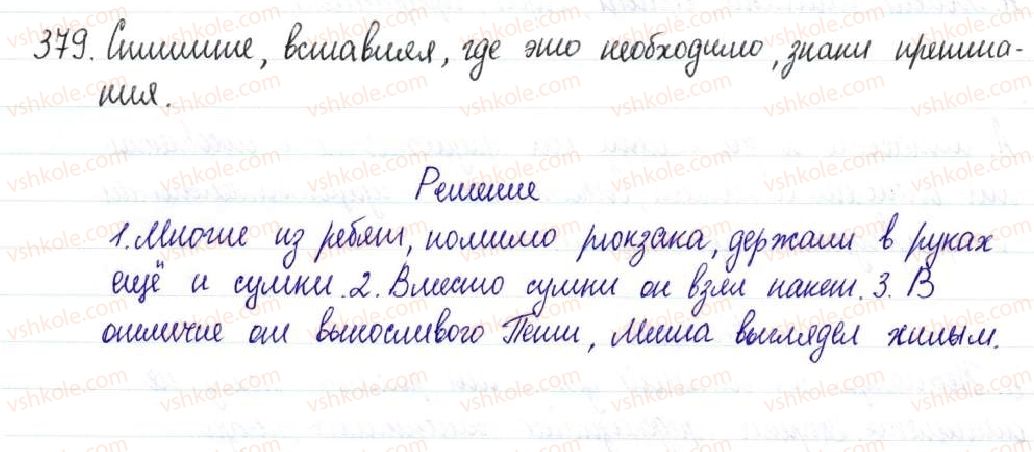 379. Спишите, вставляя, где это необходимо, знаки препина-
ния.
Решение
1. Многие из ребят, помимо рюкзака, держали в руках
ещё и сумки. 2. Вместо сумки он взял пакет. 3. В
отличие от выносливого Пети, Миша выглядел хилым.